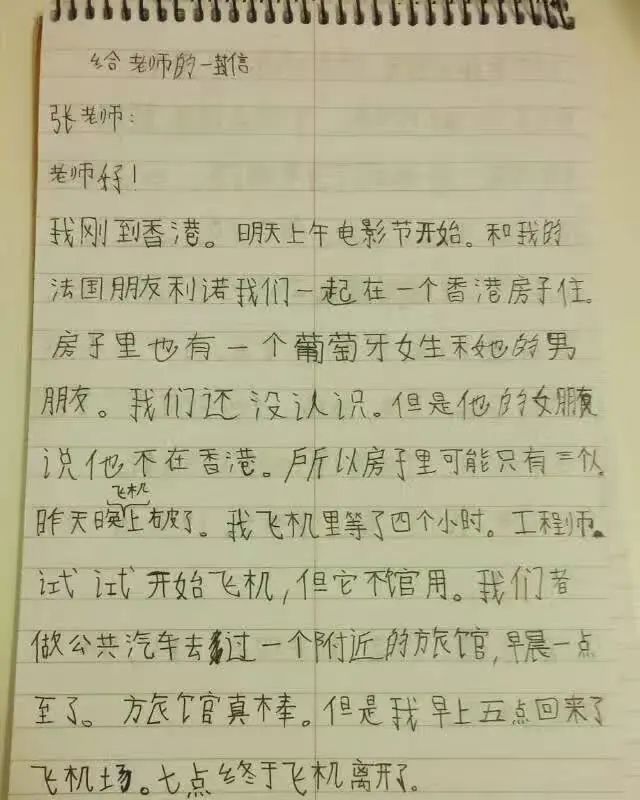 给老师的一封信
张老师:
老师好!
我刚到香港。明天上午电影节开始。和我的
法国朋友利诺我们一起在一个香港房子住。
房子里也有一个葡萄牙女生和她的男
朋友。我们还没认识。但是他的女朋友
说他不在香港。所以房子里可能只有三个人。
飞机
昨天晚上破了。我飞机里等了四个小时。工程师
试试开始飞机,但它不管用。我们者
做公共汽车去过一个附近的旅馆,早晨一点
至了。旅馆真棒。但是我早上五点回来了
飞机场。七点终于飞机离开了。